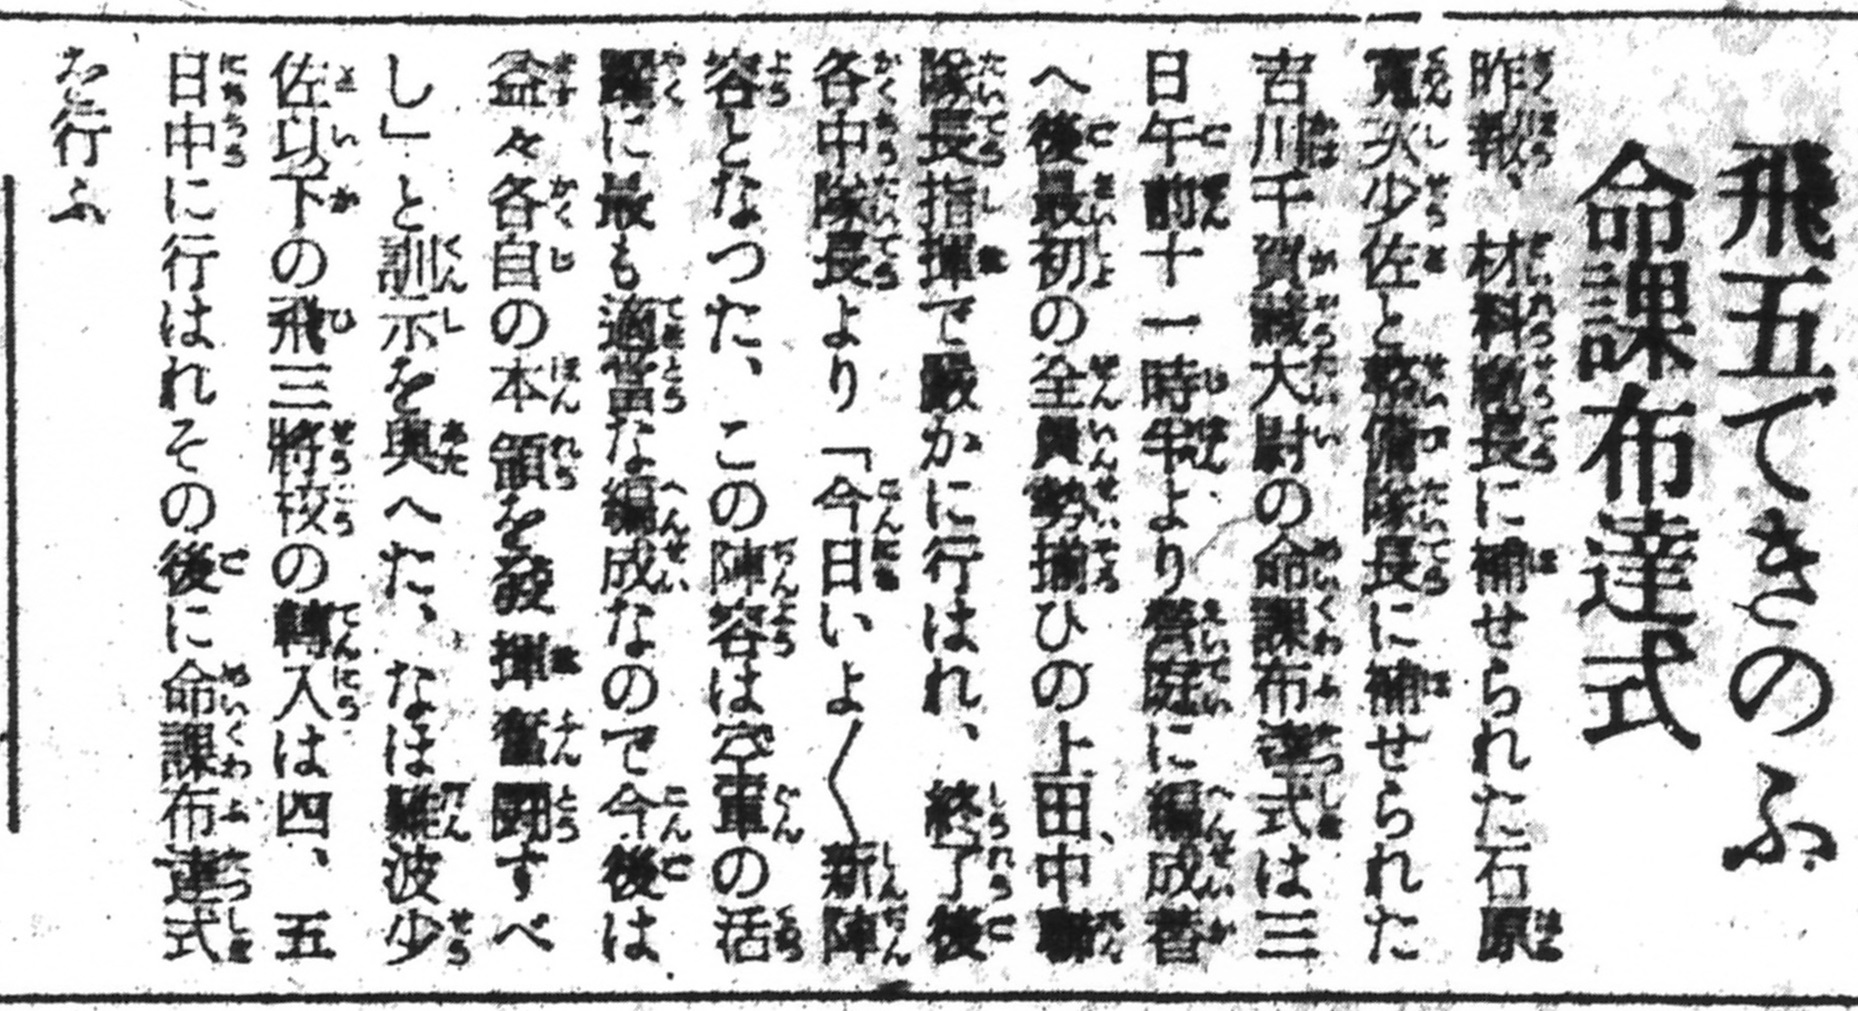 飛五てきのふ
命課布達式
昨報、材料廠長に補せられた石原
寬次少佐と整備隊長に補せられた
吉川千賀藏大尉の命課布達式は三
日午前十一時半より營庭に編成替
へ後最初の全員勢揃ひの上田中聯
隊長指揮で嚴かに行はれ、終了後
各中隊長より「今日いよ〳〵新陣
容となつた、この陣容は空軍の活
躍に最も適當な編成なので今後は
益々各自の本領を發揮奮鬪すべ
し」と訓示を與へた、なほ難波少
佐以下の飛三將校の轉入は四、五
日中に行はれその後に命課布達式
を行ふ